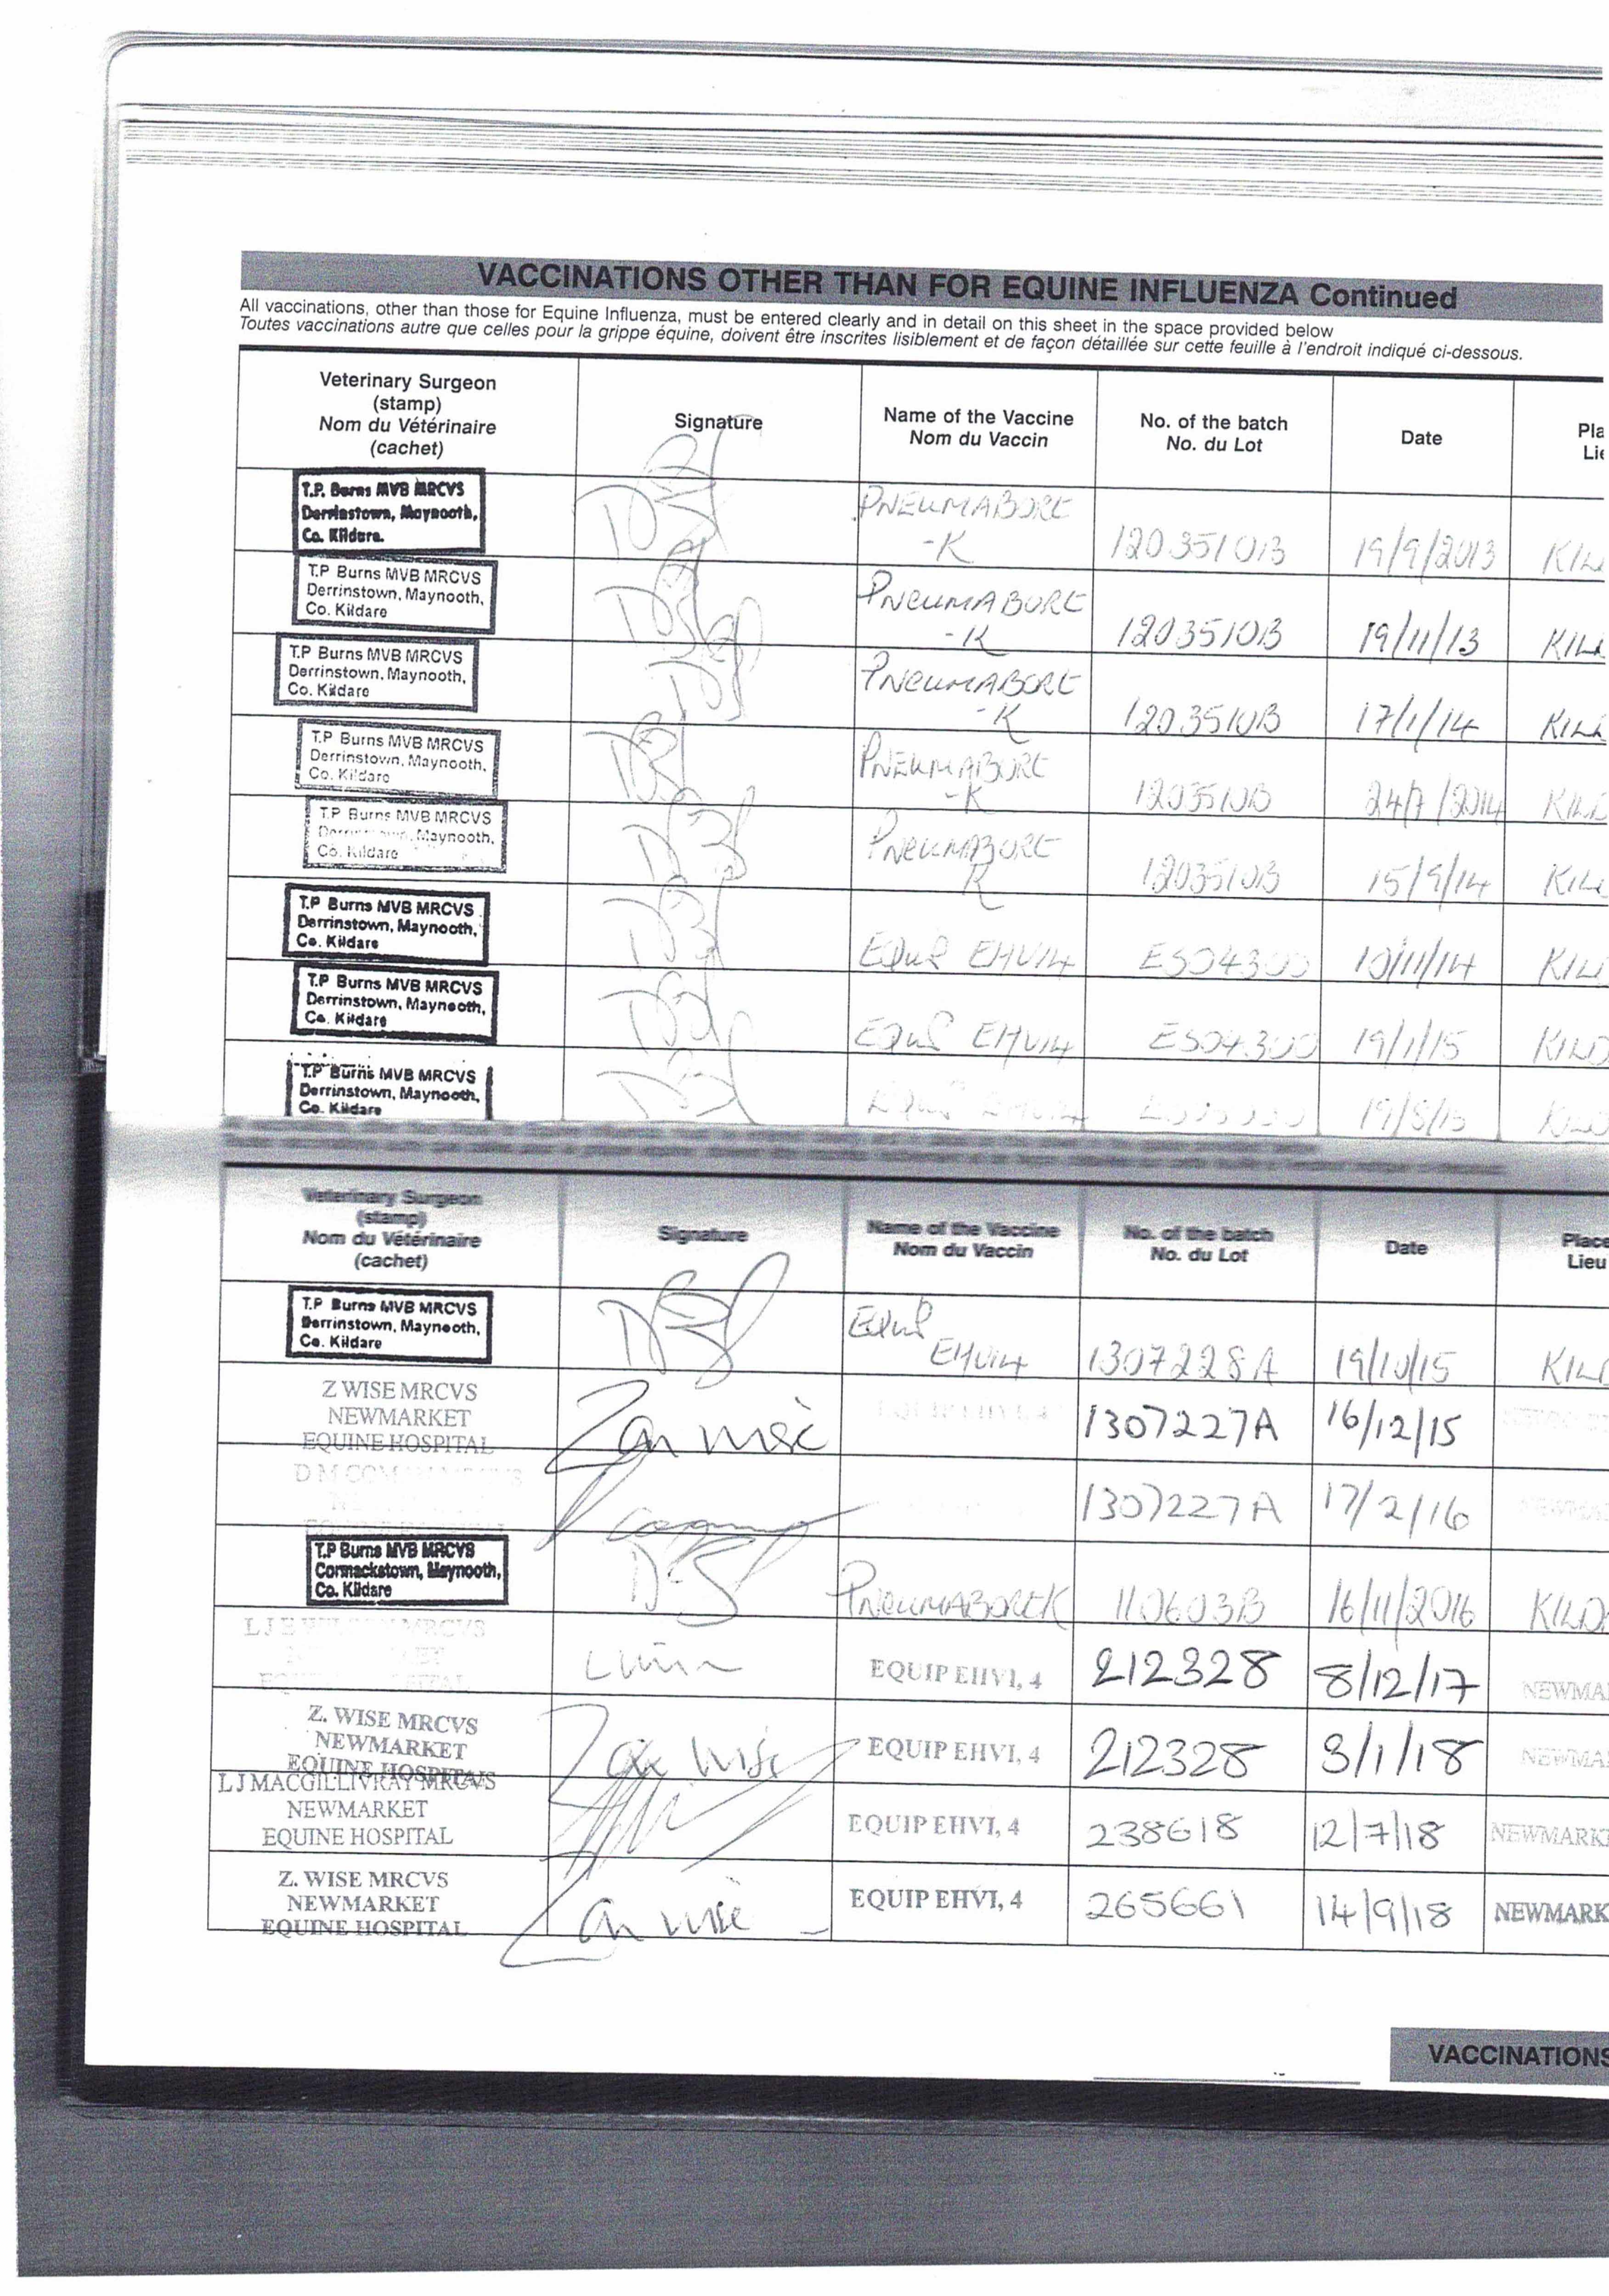 VACCINATIONS OTHER THAN FOR EQUINE INFLUENZA Continued
All vaccinations, other than those for Equine Influenza, must be entered clearly and in detail on this sheet in the space provided below
Toutes vaccinations autre que celles pour la grippe équine, doivent être inscrites lisiblement et de façon détaillée sur cette feuille à l'endroit indiqué ci-dessous.
Veterinary Surgeon
(stamp)
Nom du Vétérinaire
(cachet)
Signature
Name of the Vaccine
Nom du Vaccin
No. of the batch
No. du Lot
Date
Pla
Lie
T.P. Burns MVB MRCVS
Derrinstown, Maynooth,
Co. Kildare.
PNEUMABORT
-K
1203510B
19/9/2013
KIL
T.P Burns MVB MRCVS
Derrinstown, Maynooth,
Co. Kildare
PNEUMABORT
-K
1203510B
19/11/13
KIL
T.P Burns MVB MRCVS
Derrinstown, Maynooth,
Co. Kildare
PNEUMABORT
-K
1203510B
17/1/14
KIL
T.P Burns MVB MRCVS
Derrinstown, Maynooth,
Co. Kildare
PNEUMABORT
-K
1203510B
24/7/2014
KIL
T.P Burns MVB MRCVS
Maynooth,
Co. Kildare
PNEUMABORT
K
1203510B
15/9/14
KIL
T.P Burns MVB MRCVS
Derrinstown, Maynooth,
Co. Kildare
EQUIP EHV14
ES04300
10/11/14
KIL
T.P Burns MVB MRCVS
Derrinstown, Maynooth,
Co. Kildare
EQUIP EHV14
ES04300
19/1/15
KILD
T.P Burns MVB MRCVS
Derrinstown, Maynooth,
Co. Kildare
EQUIP EHV14
KILD
Veterinary Surgeon
(stamp)
Nom du Vétérinaire
(cachet)
Signature
Name of the Vaccine
Nom du Vaccin
No. of the batch
No. du Lot
Date
Place
Lieu
T.P Burns MVB MRCVS
Derrinstown, Maynooth,
Co. Kildare
EQUIP
EHV14
1307228A
19/10/15
KILD
Z WISE MRCVS
NEWMARKET
EQUINE HOSPITAL
Zoe Wise
EQUIP EHVI, 4
1307227A
16/12/15
D M
1307227A
17/2/16
T.P Burns MVB MRCVS
Cormackstown, Maynooth,
Co. Kildare
PNEUMABORTK
110603B
16/11/2016
KILD
MRCVS
EQUIP EHVI, 4
212328
8/12/17
NEWMA
Z. WISE MRCVS
NEWMARKET
EQUINE HOSPITAL
Zoe Wise
EQUIP EHVI, 4
212328
3/1/18
NEWMA
LJ MACGILLIVRAY MRCVS
NEWMARKET
EQUINE HOSPITAL
EQUIP EHVI, 4
238618
12/7/18
NEWMARK
Z. WISE MRCVS
NEWMARKET
EQUINE HOSPITAL
Zoe Wise
EQUIP EHVI, 4
265661
14/9/18
NEWMARK
VACCINATIONS